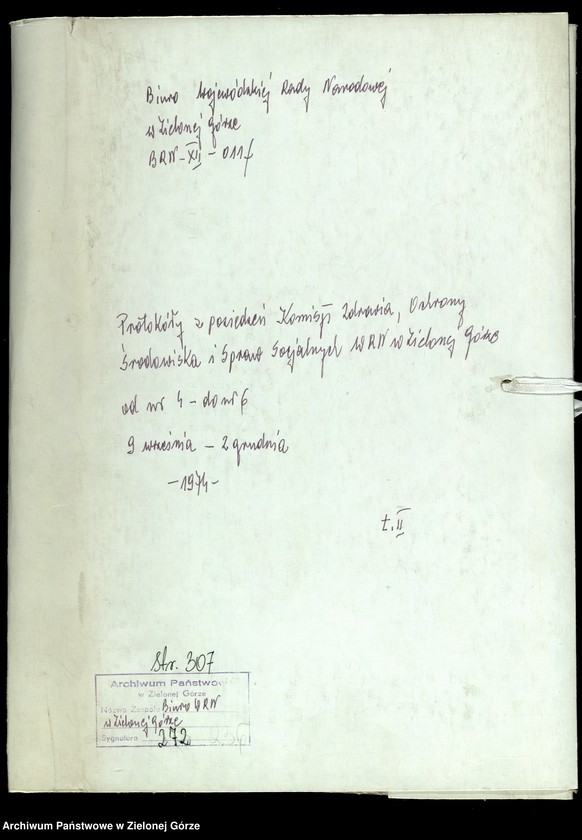 Biuro Wojewódzkiej Rady Narodowej
w Zielonej Górze
BRN-XII-011/
Protokóły z posiedzeń Komisji Zdrowia, Ochrony
Środowiska i Spraw Socjalnych WRN w Zielonej Górze
od nr 4 - do nr 6
9 września - 2 grudnia
-1974-
t. II
Str. 307
Archiwum Państwowe
w Zielonej Górze
Nazwa Zespołu Biuro WRN
w Zielonej Górze
Sygnatura 272
Archiwum Państwowe w Zielonej Górze